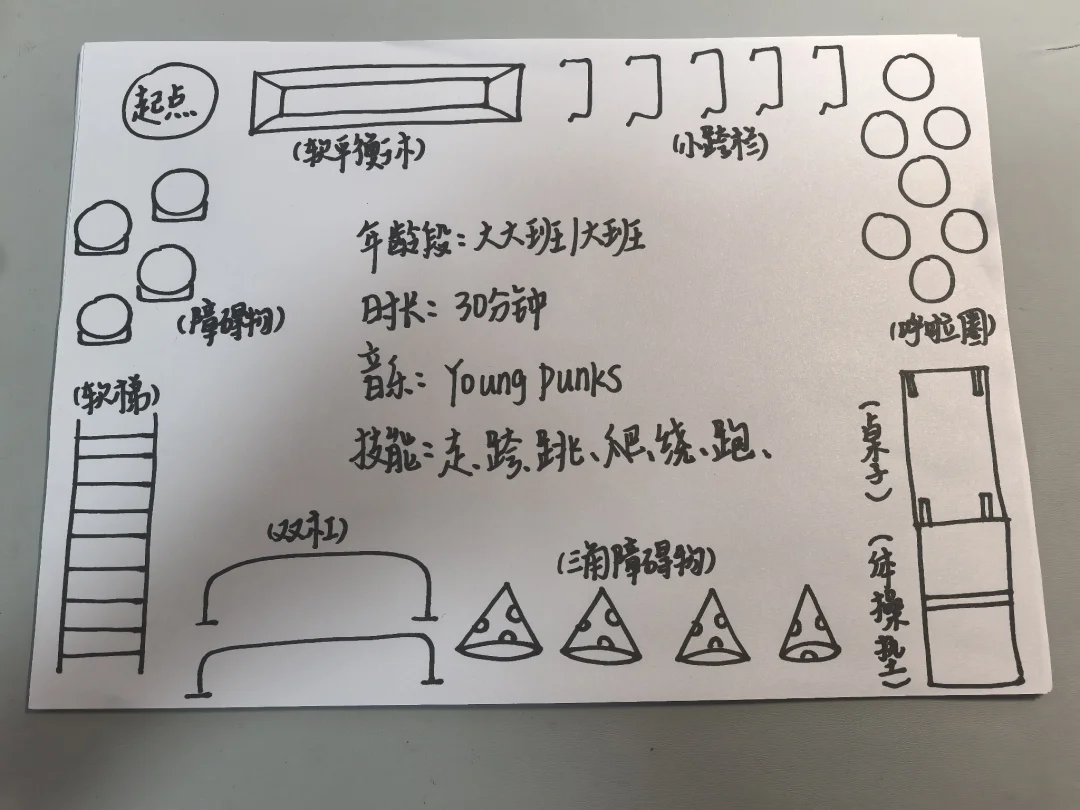 起点
(软平衡木)
(小跨栏)
年龄段：大大班/大班
(障碍物)
时长：30分钟
(呼啦圈)
音乐：Young punks
(软梯)
技能：走、跨、跳、爬、绕、跑、
(桌子)
(双杠)
(三角障碍物)
(体操垫)